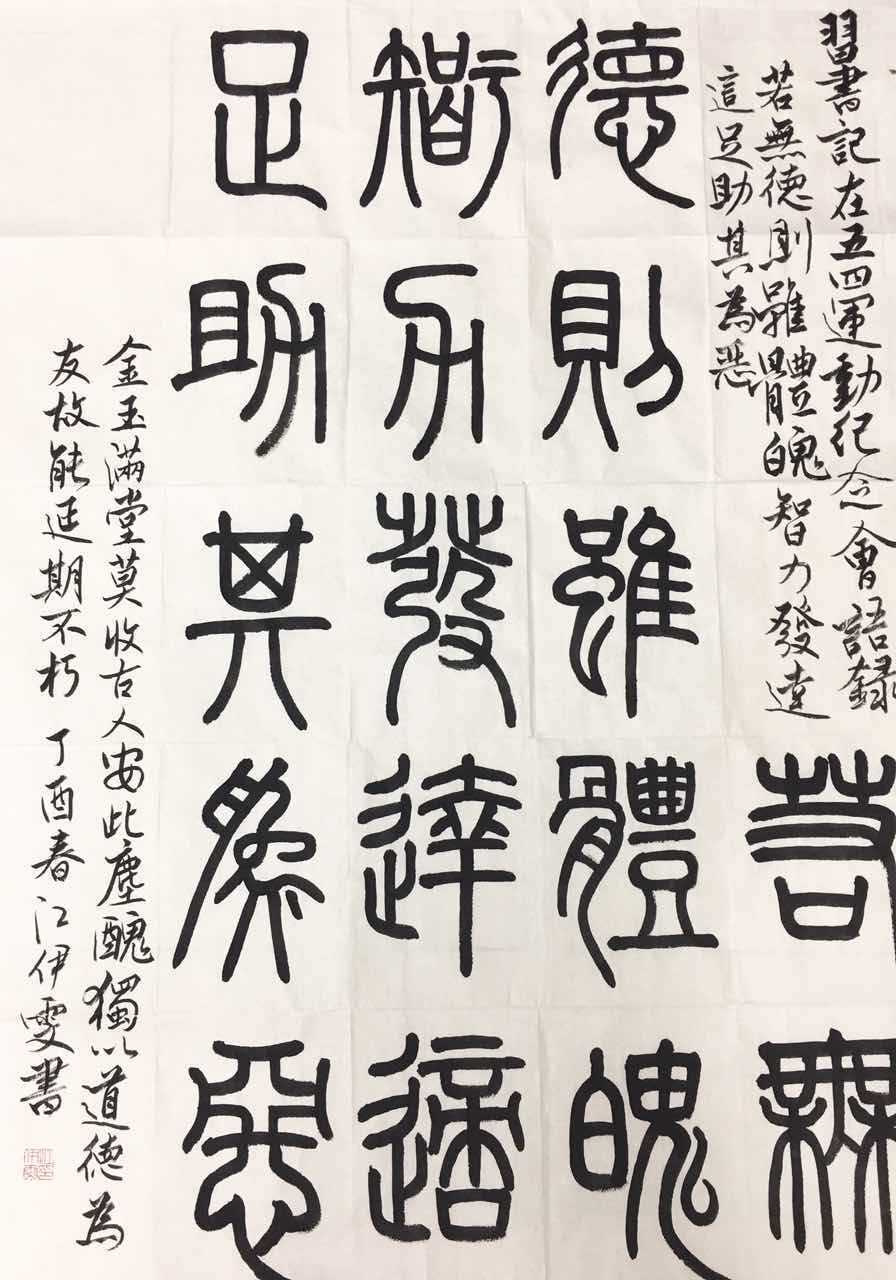 習書記在五四運動紀念會語錄
若無德則雖體魄智力發達
這足助其為惡
若無
德則雖體魄
智力發達適
足助其為惡
金玉滿堂莫收古人安此塵醜獨以道德為
友故能延期不朽 丁酉春江伊雯書